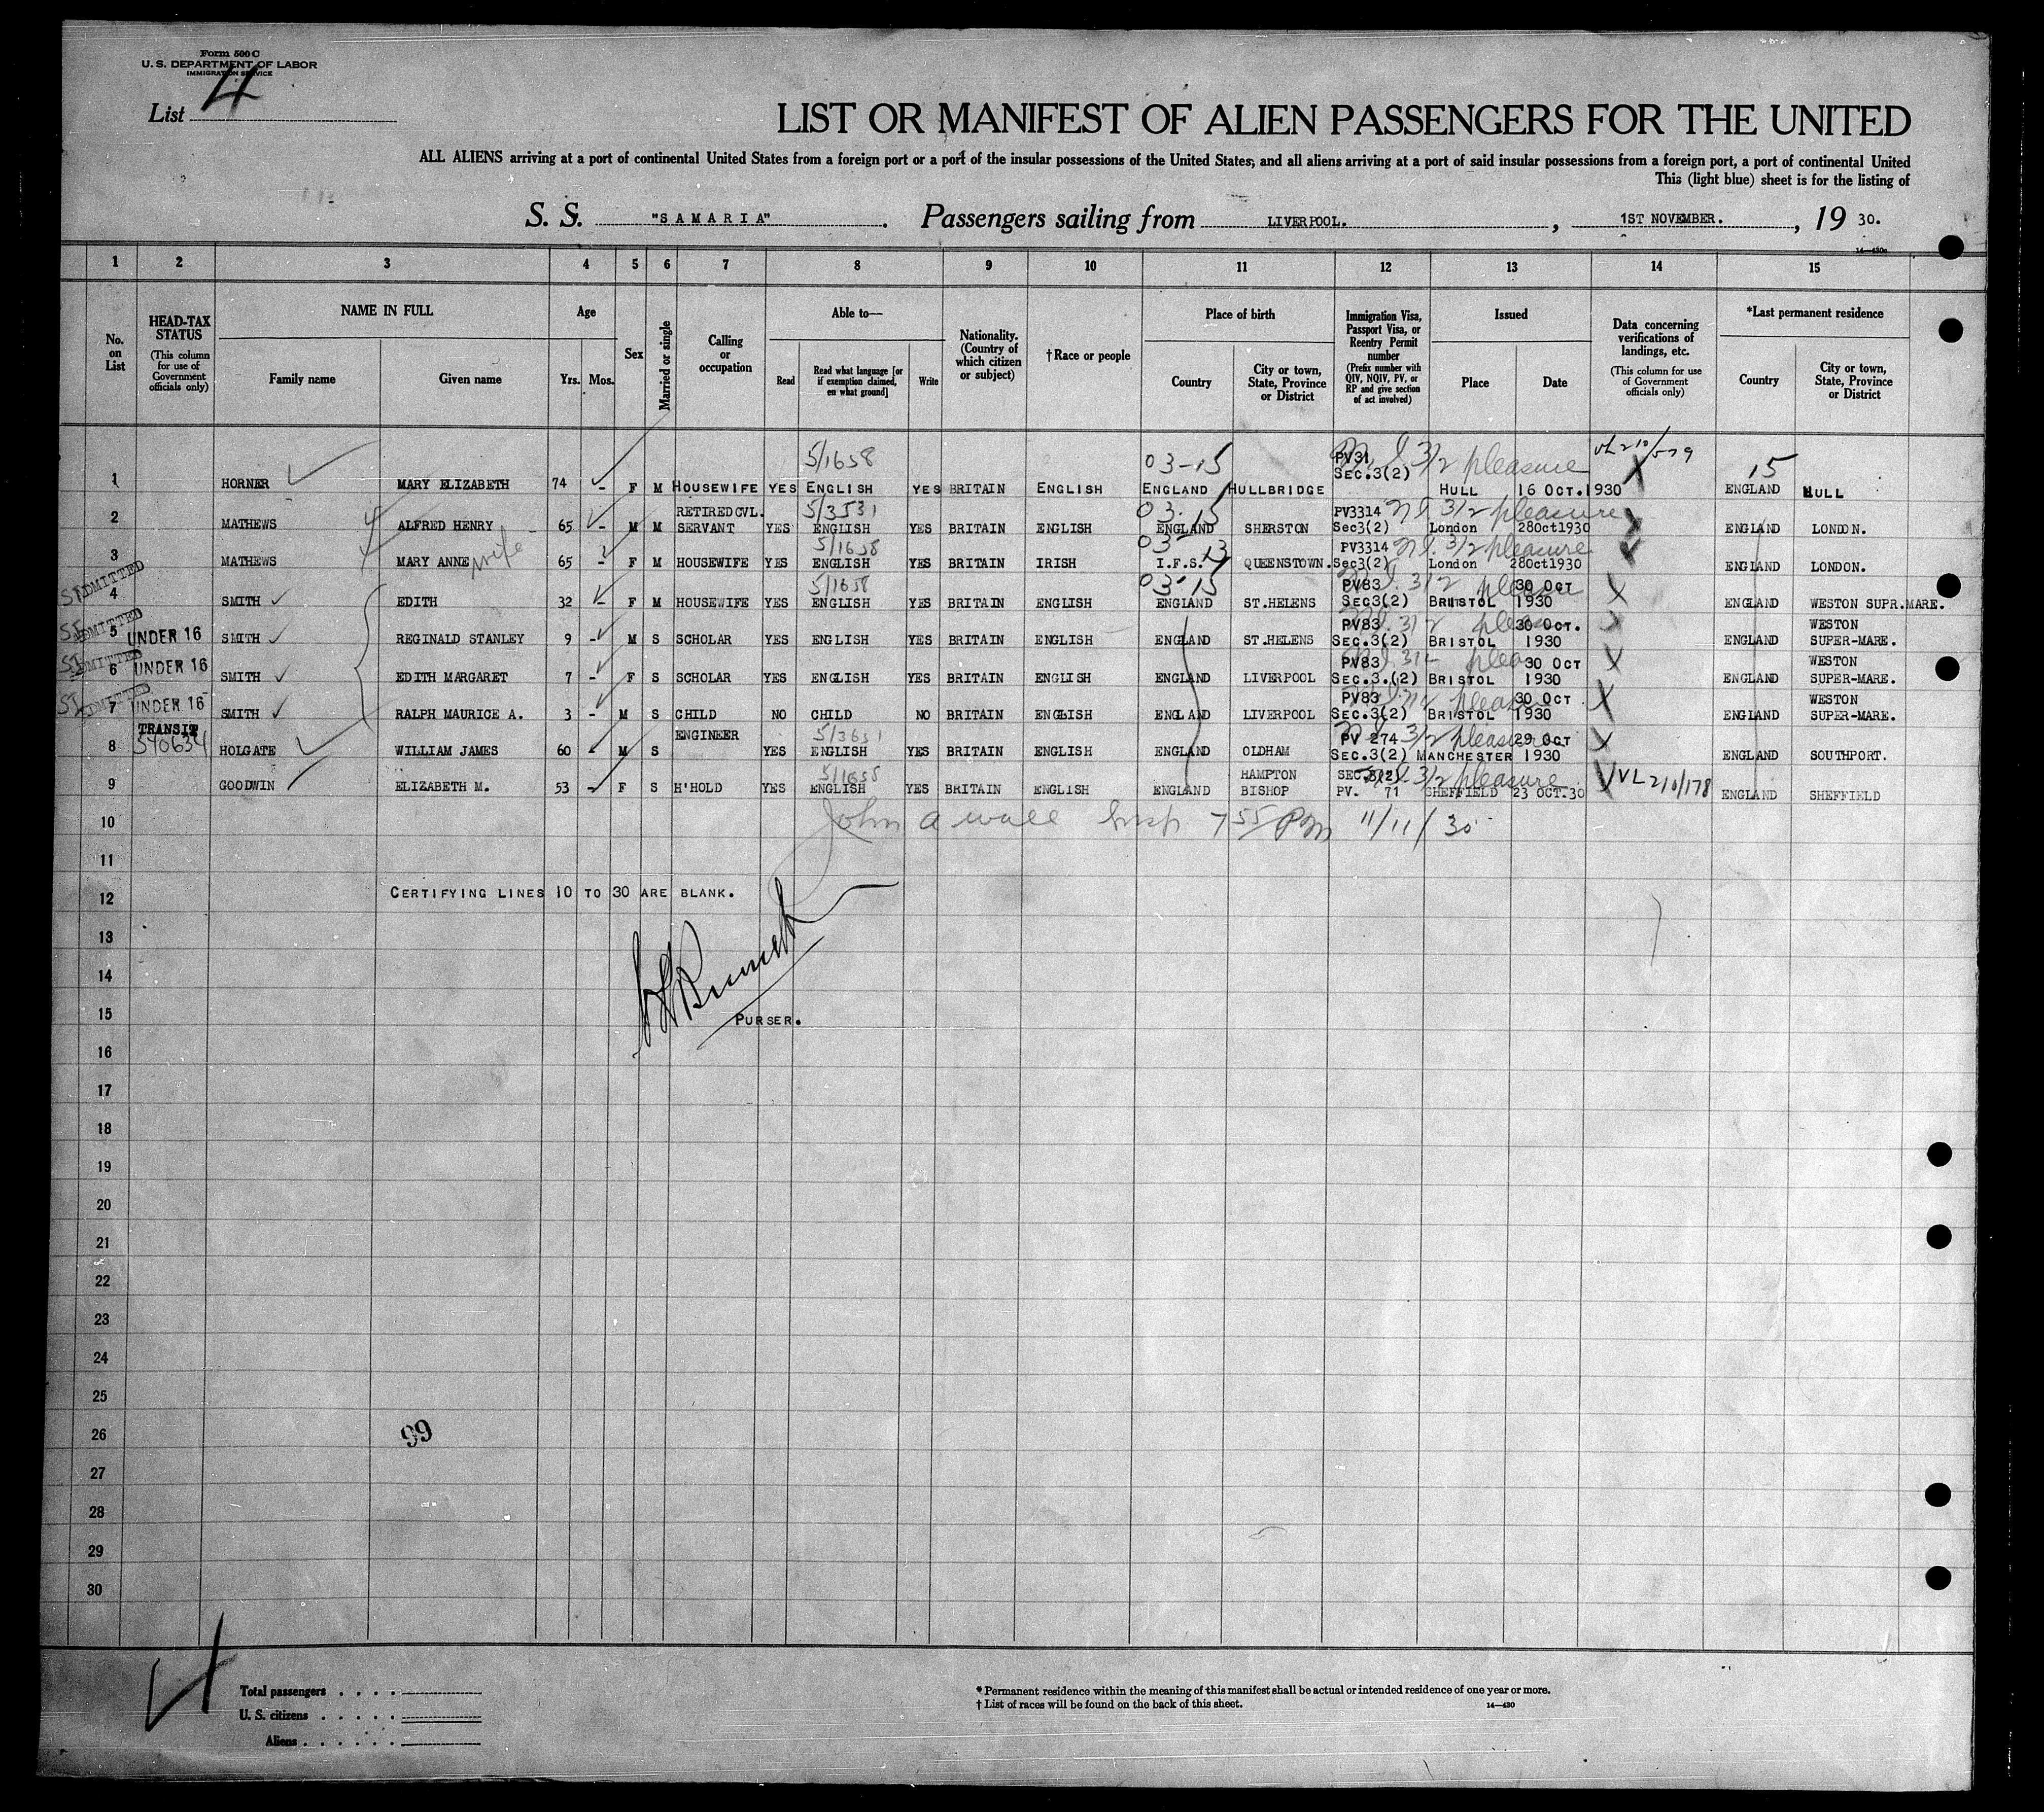 Form 500 C
U. S. DEPARTMENT OF LABOR
IMMIGRATION SERVICE
List 4
LIST OR MANIFEST OF ALIEN PASSENGERS FOR THE UNITED
ALL ALIENS arriving at a port of continental United States from a foreign port or a port of the insular possessions of the United States, and all aliens arriving at a port of said insular possessions from a foreign port, a port of continental United
This (light blue) sheet is for the listing of
S. S. "SAMARIA". Passengers sailing from LIVERPOOL. , 1ST NOVEMBER. , 19 30.
14—430a
1 2 3 4 5 6 7 8 9 10 11 12 13 14 15
No. on List
HEAD-TAX STATUS (This column for use of Government officials only)
NAME IN FULL
Family name Given name
Age
Yrs. Mos.
Sex
Married or single
Calling or occupation
Able to—
Read Read what language [or if exemption claimed, on what ground] Write
Nationality. (Country of which citizen or subject)
† Race or people
Place of birth
Country City or town, State, Province or District
Immigration Visa, Passport Visa, or Reentry Permit number (Prefix number with QIV, NQIV, PV, or RP and give section of act involved)
Issued
Place Date
Data concerning verifications of landings, etc. (This column for use of Government officials only)
*Last permanent residence
Country City or town, State, Province or District
5/1658 03-15 PV31 3/2 pleasure 15
1 HORNER MARY ELIZABETH 74 - F M HOUSEWIFE YES ENGLISH YES BRITAIN ENGLISH ENGLAND HULLBRIDGE SEC.3(2) HULL 16 OCT.1930 ENGLAND HULL
RETIRED CVL. 5/3531 03-15 PV3314 3/2 pleasure
2 MATHEWS ALFRED HENRY 65 - M M SERVANT YES ENGLISH YES BRITAIN ENGLISH ENGLAND SHERSTON Sec3(2) London 28Oct1930 ENGLAND LONDON.
5/1658 03-13 PV3314 3/2 pleasure
3 MATHEWS MARY ANNE wife 65 - F M HOUSEWIFE YES ENGLISH YES BRITAIN IRISH I.F.S. QUEENSTOWN. Sec3(2) London 28Oct1930 ENGLAND LONDON.
SI ADMITTED 5/1658 03-15 PV83 30 OCT
4 SMITH EDITH 32 - F M HOUSEWIFE YES ENGLISH YES BRITAIN ENGLISH ENGLAND ST.HELENS SEC3(2) BRISTOL 1930 ENGLAND WESTON SUPR.MARE.
SI ADMITTED PV83 30 OCT. WESTON
5 UNDER 16 SMITH REGINALD STANLEY 9 - M S SCHOLAR YES ENGLISH YES BRITAIN ENGLISH ENGLAND ST.HELENS SEC.3(2) BRISTOL 1930 ENGLAND SUPER-MARE.
SI ADMITTED PV83 30 OCT WESTON
6 UNDER 16 SMITH EDITH MARGARET 7 - F S SCHOLAR YES ENGLISH YES BRITAIN ENGLISH ENGLAND LIVERPOOL SEC.3.(2) BRISTOL 1930 ENGLAND SUPER-MARE.
SI ADMITTED PV83 30 OCT WESTON
7 UNDER 16 SMITH RALPH MAURICE A. 3 - M S CHILD NO CHILD NO BRITAIN ENGLISH ENGLAND LIVERPOOL SEC.3(2) BRISTOL 1930 ENGLAND SUPER-MARE.
TRANSIT ENGINEER 5/3631 PV 274 3/2 pleasure 29 OCT
8 540634 HOLGATE WILLIAM JAMES 60 M S YES ENGLISH YES BRITAIN ENGLISH ENGLAND OLDHAM SEC.3(2) MANCHESTER 1930 ENGLAND SOUTHPORT.
HAMPTON 3/2 pleasure VL 210/178
9 GOODWIN ELIZABETH M. 53 - F S H'HOLD YES ENGLISH YES BRITAIN ENGLISH ENGLAND BISHOP PV. 71 SHEFFIELD 23 OCT.30 ENGLAND SHEFFIELD
10 John A Wall Insp 7 55 PM 11/11/30
11
12 CERTIFYING LINES 10 TO 30 ARE BLANK.
13
14
15 PURSER.
16
17
18
19
20
21
22
23
24
25
26 99
27
28
29
30
4
Total passengers
U. S. citizens
Aliens
* Permanent residence within the meaning of this manifest shall be actual or intended residence of one year or more.
† List of races will be found on the back of this sheet. 14—430